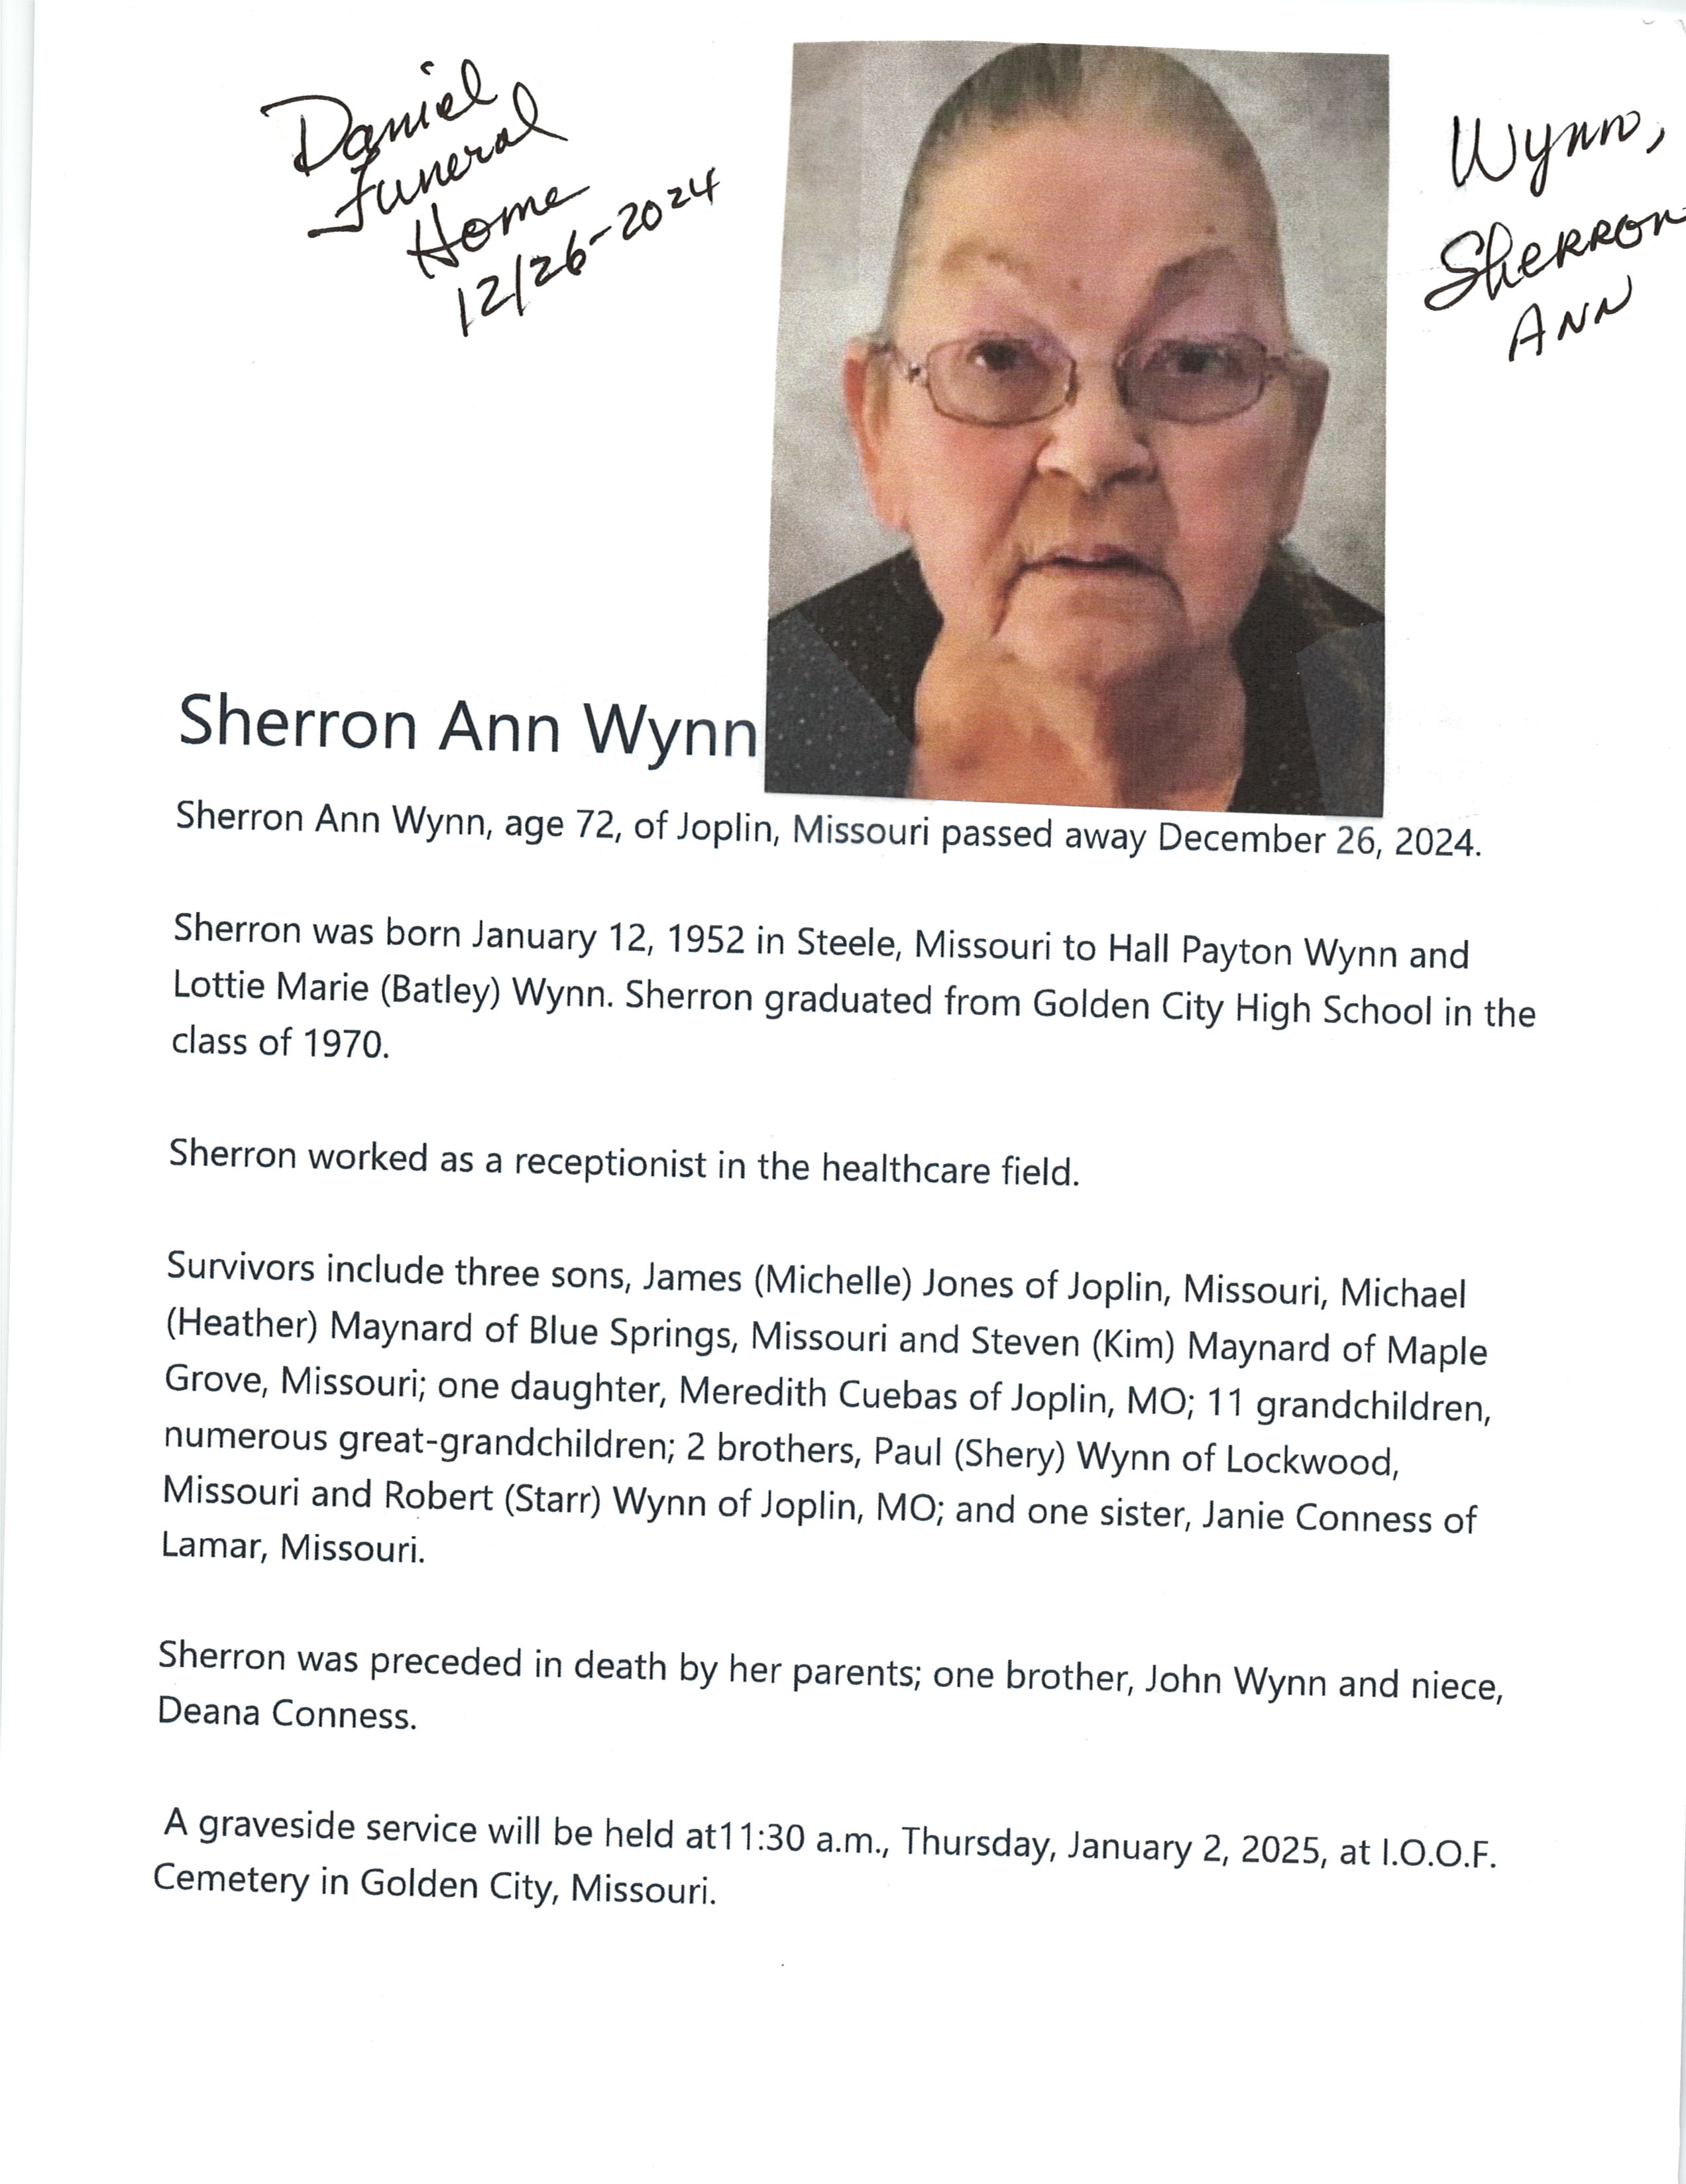 Daniel
Funeral
Home
12/26-2024
Wynn,
Sherron
Ann
Sherron Ann Wynn
Sherron Ann Wynn, age 72, of Joplin, Missouri passed away December 26, 2024.
Sherron was born January 12, 1952 in Steele, Missouri to Hall Payton Wynn and
Lottie Marie (Batley) Wynn. Sherron graduated from Golden City High School in the
class of 1970.
Sherron worked as a receptionist in the healthcare field.
Survivors include three sons, James (Michelle) Jones of Joplin, Missouri, Michael
(Heather) Maynard of Blue Springs, Missouri and Steven (Kim) Maynard of Maple
Grove, Missouri; one daughter, Meredith Cuebas of Joplin, MO; 11 grandchildren,
numerous great-grandchildren; 2 brothers, Paul (Shery) Wynn of Lockwood,
Missouri and Robert (Starr) Wynn of Joplin, MO; and one sister, Janie Conness of
Lamar, Missouri.
Sherron was preceded in death by her parents; one brother, John Wynn and niece,
Deana Conness.
A graveside service will be held at11:30 a.m., Thursday, January 2, 2025, at I.O.O.F.
Cemetery in Golden City, Missouri.